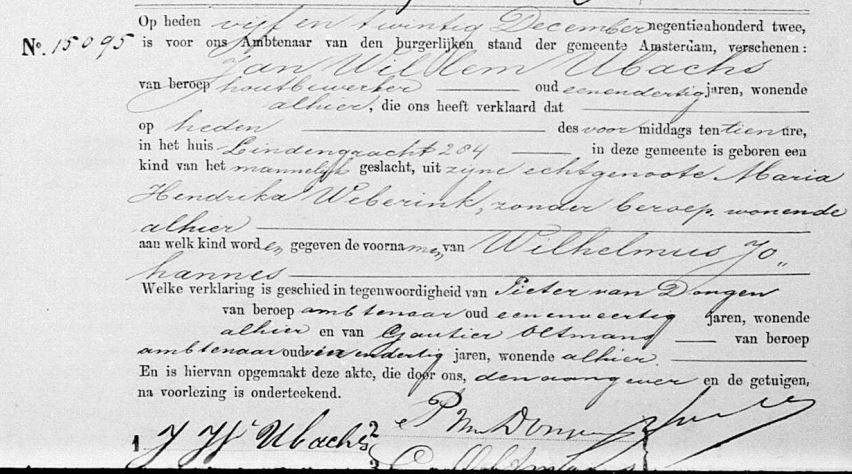 Op heden vijf en twintig December negentienhonderd twee,
No. 15095 is voor ons Ambtenaar van den burgerlijken stand der gemeente Amsterdam, verschenen:
Jan Willem Ubachs
van beroep houtbewerker oud eenendertig jaren, wonende
alhier, die ons heeft verklaard dat
op heden des voor middags ten tien ure,
in het huis Lindengracht 284 in deze gemeente is geboren een
kind van het mannelijk geslacht, uit zijne echtgenoote Maria
Hendrika Weberink, zonder beroep, wonende
alhier
aan welk kind worden gegeven de voornamen van Wilhelmus Jo„
hannes
Welke verklaring is geschied in tegenwoordigheid van Pieter van Dongen
van beroep ambtenaar oud eenenveertig jaren, wonende
alhier en van Oltmans van beroep
ambtenaar oud vierendertig jaren, wonende alhier.
En is hiervan opgemaakt deze akte, die door ons, den aangever en de getuigen,
na voorlezing is onderteekend.
1 J W Ubachs 2 P v Dongen
3